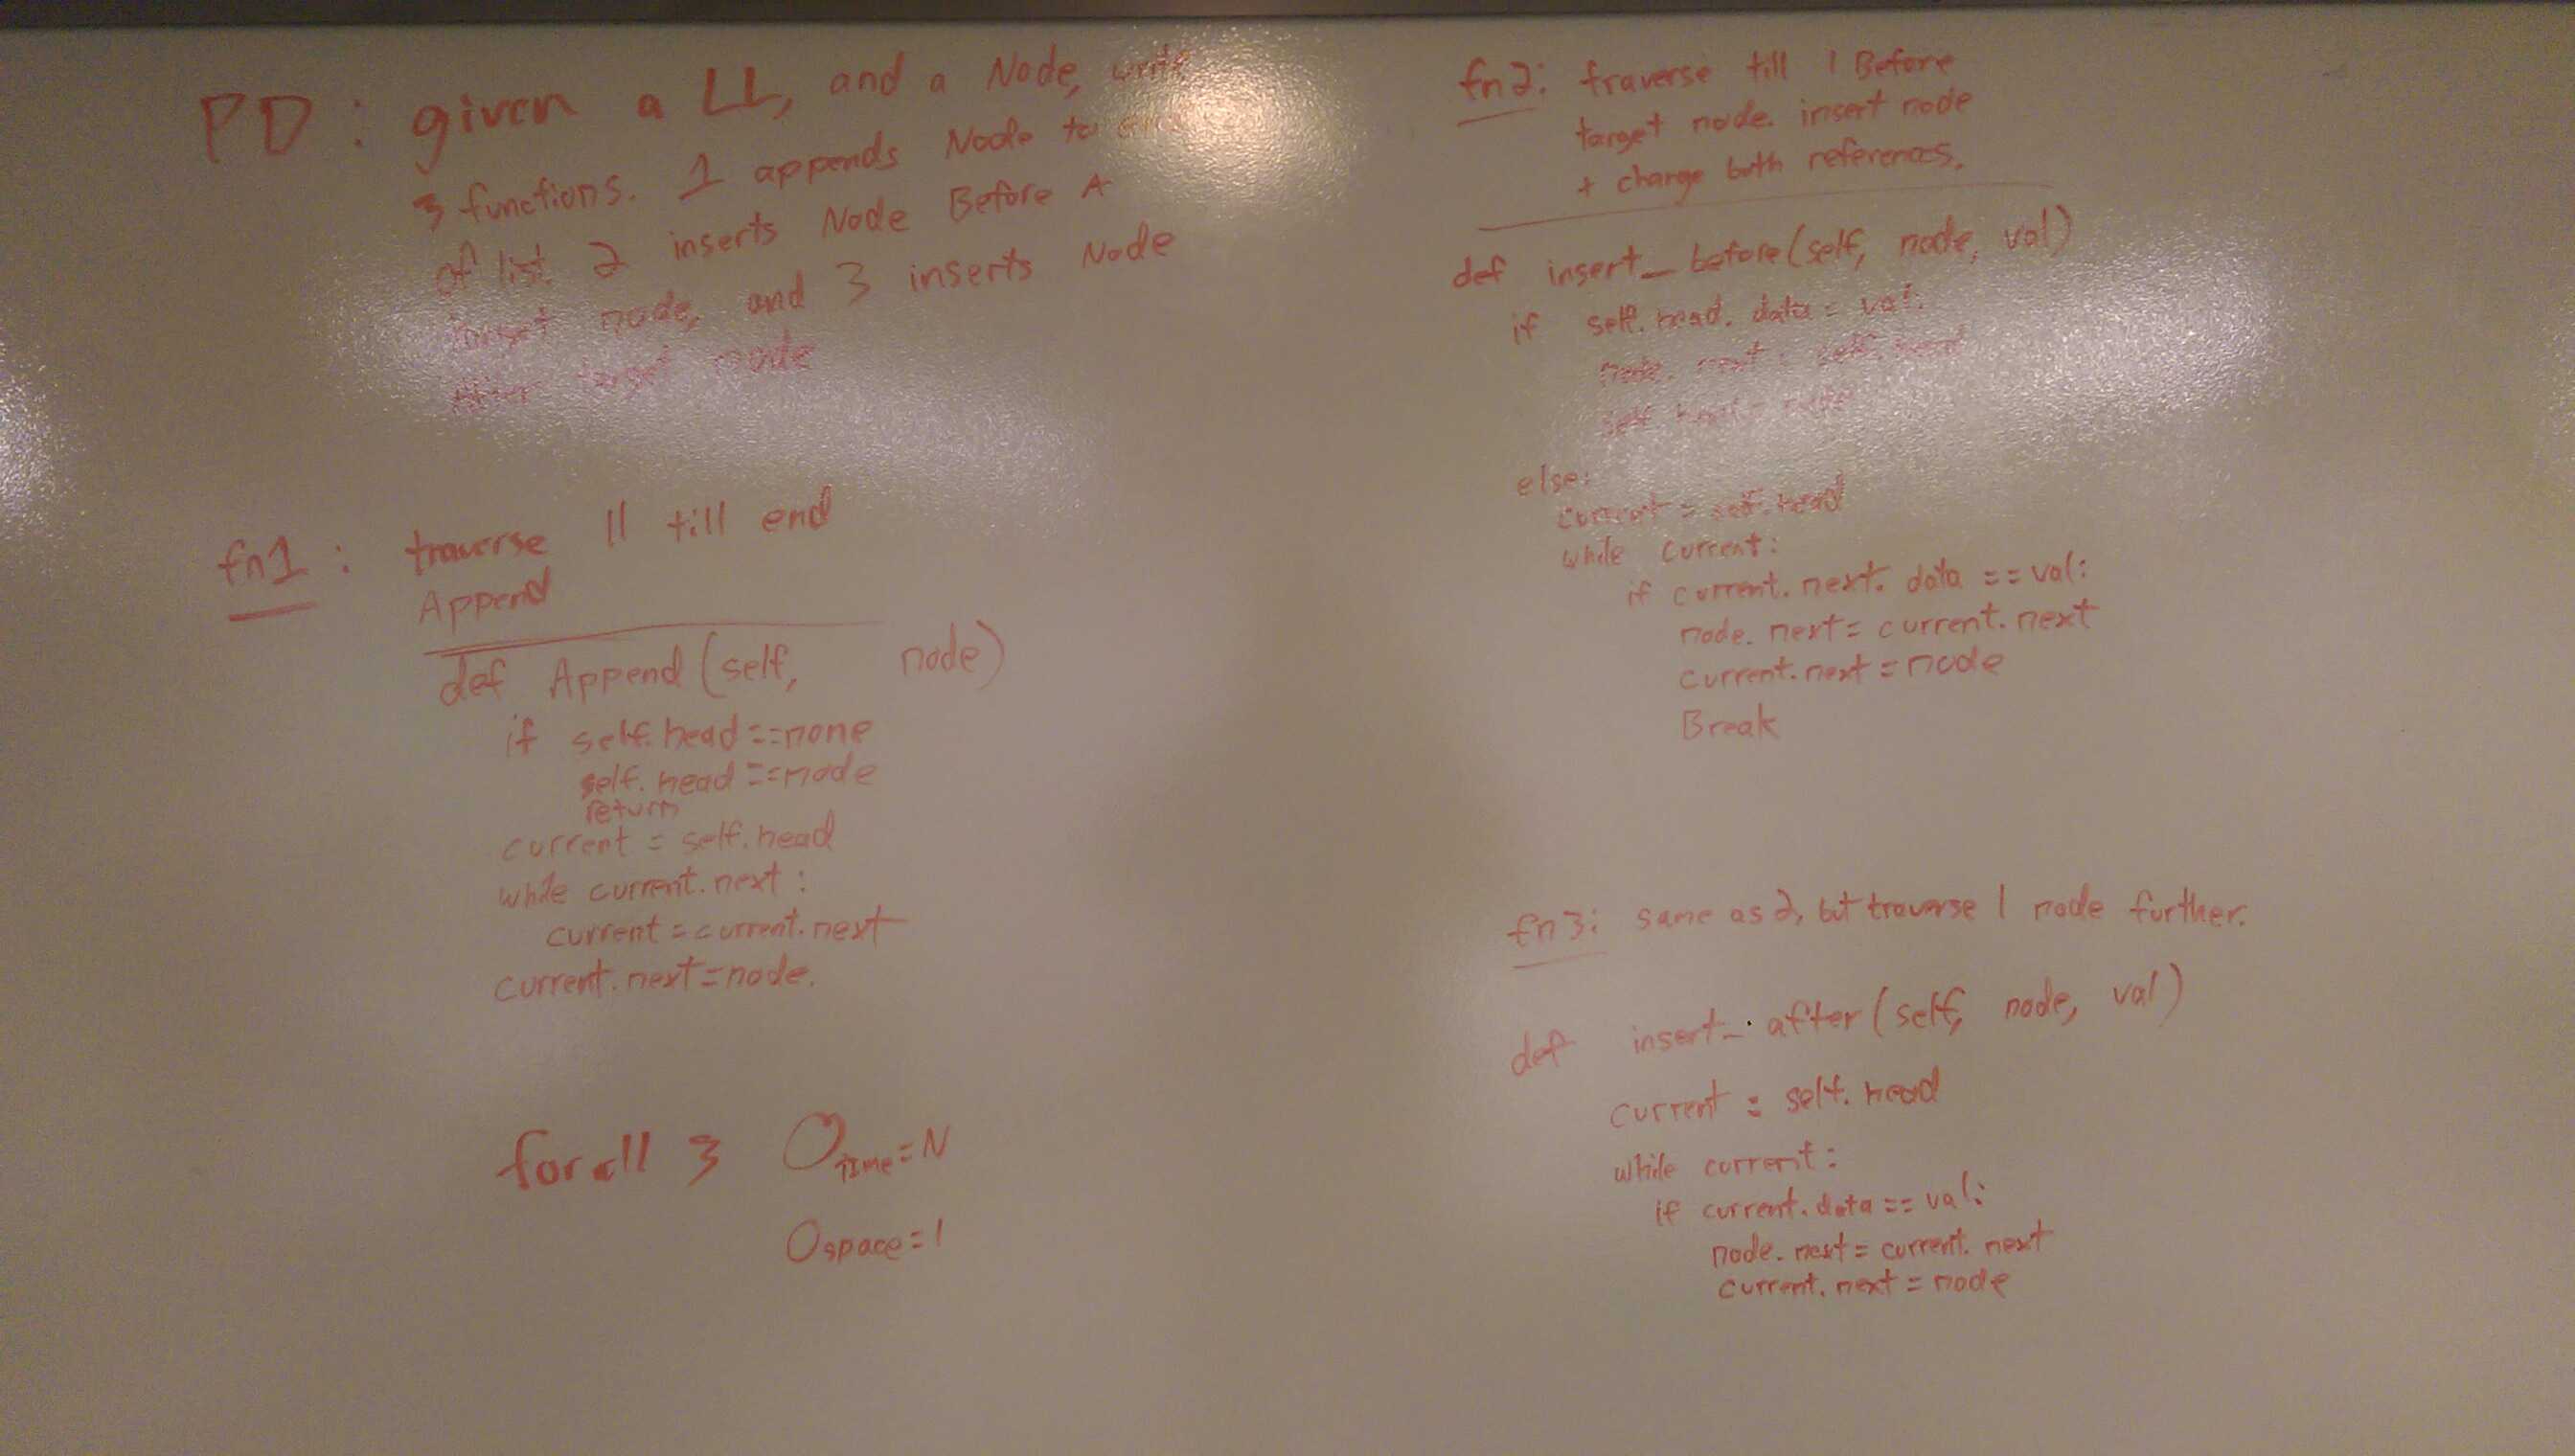 PD: given a LL, and a Node, write
3 functions. 1 appends Node to end
of list 2 inserts Node Before A
target node, and 3 inserts Node
After target node
fn1: traverse ll till end
Append
def Append(self, node)
if self.head==none
self.head==node
return
current = self.head
while current.next:
current = current.next
current.next=node.
for all 3 O TIme = N
O space = 1
fn2: traverse till 1 Before
target node. insert node
+ change both references.
def insert_before(self, node, val)
if self.head.data = val:
node.next = self.head
self.head = node
else:
current = self.head
while current:
if current.next.data == val:
node.next = current.next
current.next = node
Break
fn3: same as 2, but traverse 1 node further.
def insert_after(self, node, val)
current = self.head
while current:
if current.data == val:
node.next = current.next
current.next = node